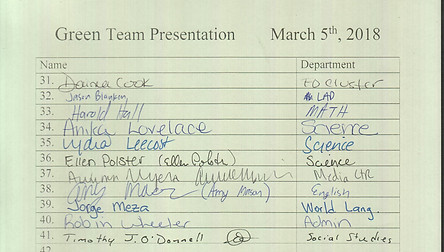 Green Team Presentation March 5th, 2018
Name Department
31. Cook ED Cluster
32. Jason LAD
33. Harold Hall MATH
34. Anika Lovelace Science
35. Lydia Leecost Science
36. Ellen Polster (Ellen Polster) Science
37. Autumn Media CTR
38. Amy (Amy Mason) English
39. Jorge Meza World Lang.
40. Robin Wheeler Admin
41. Timothy J. O'Donnell Social Studies